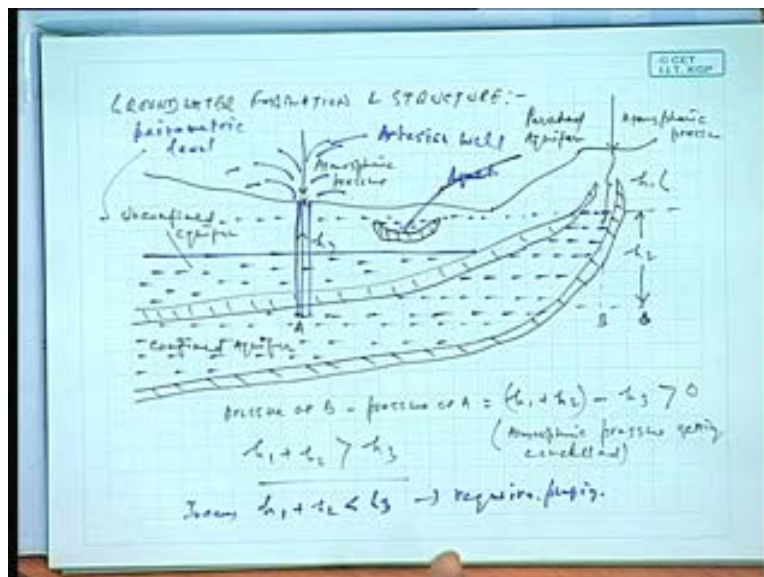 © CET
I.I.T. KGP
GROUNDWATER FORMATION & STRUCTURE:-
level
Artesian well
Perched
Aquifer
Atmospheric
pressure
Atmospheric
pressure
Unconfined
aquifer
h3
h2
A
B
Confined Aquifer
pressure at B - pressure at A = (h1 + h2) - h3 > 0
(Atmospheric pressure getting
cancelled)
h1 + h2 > h3
h1 + h2 < h3 →